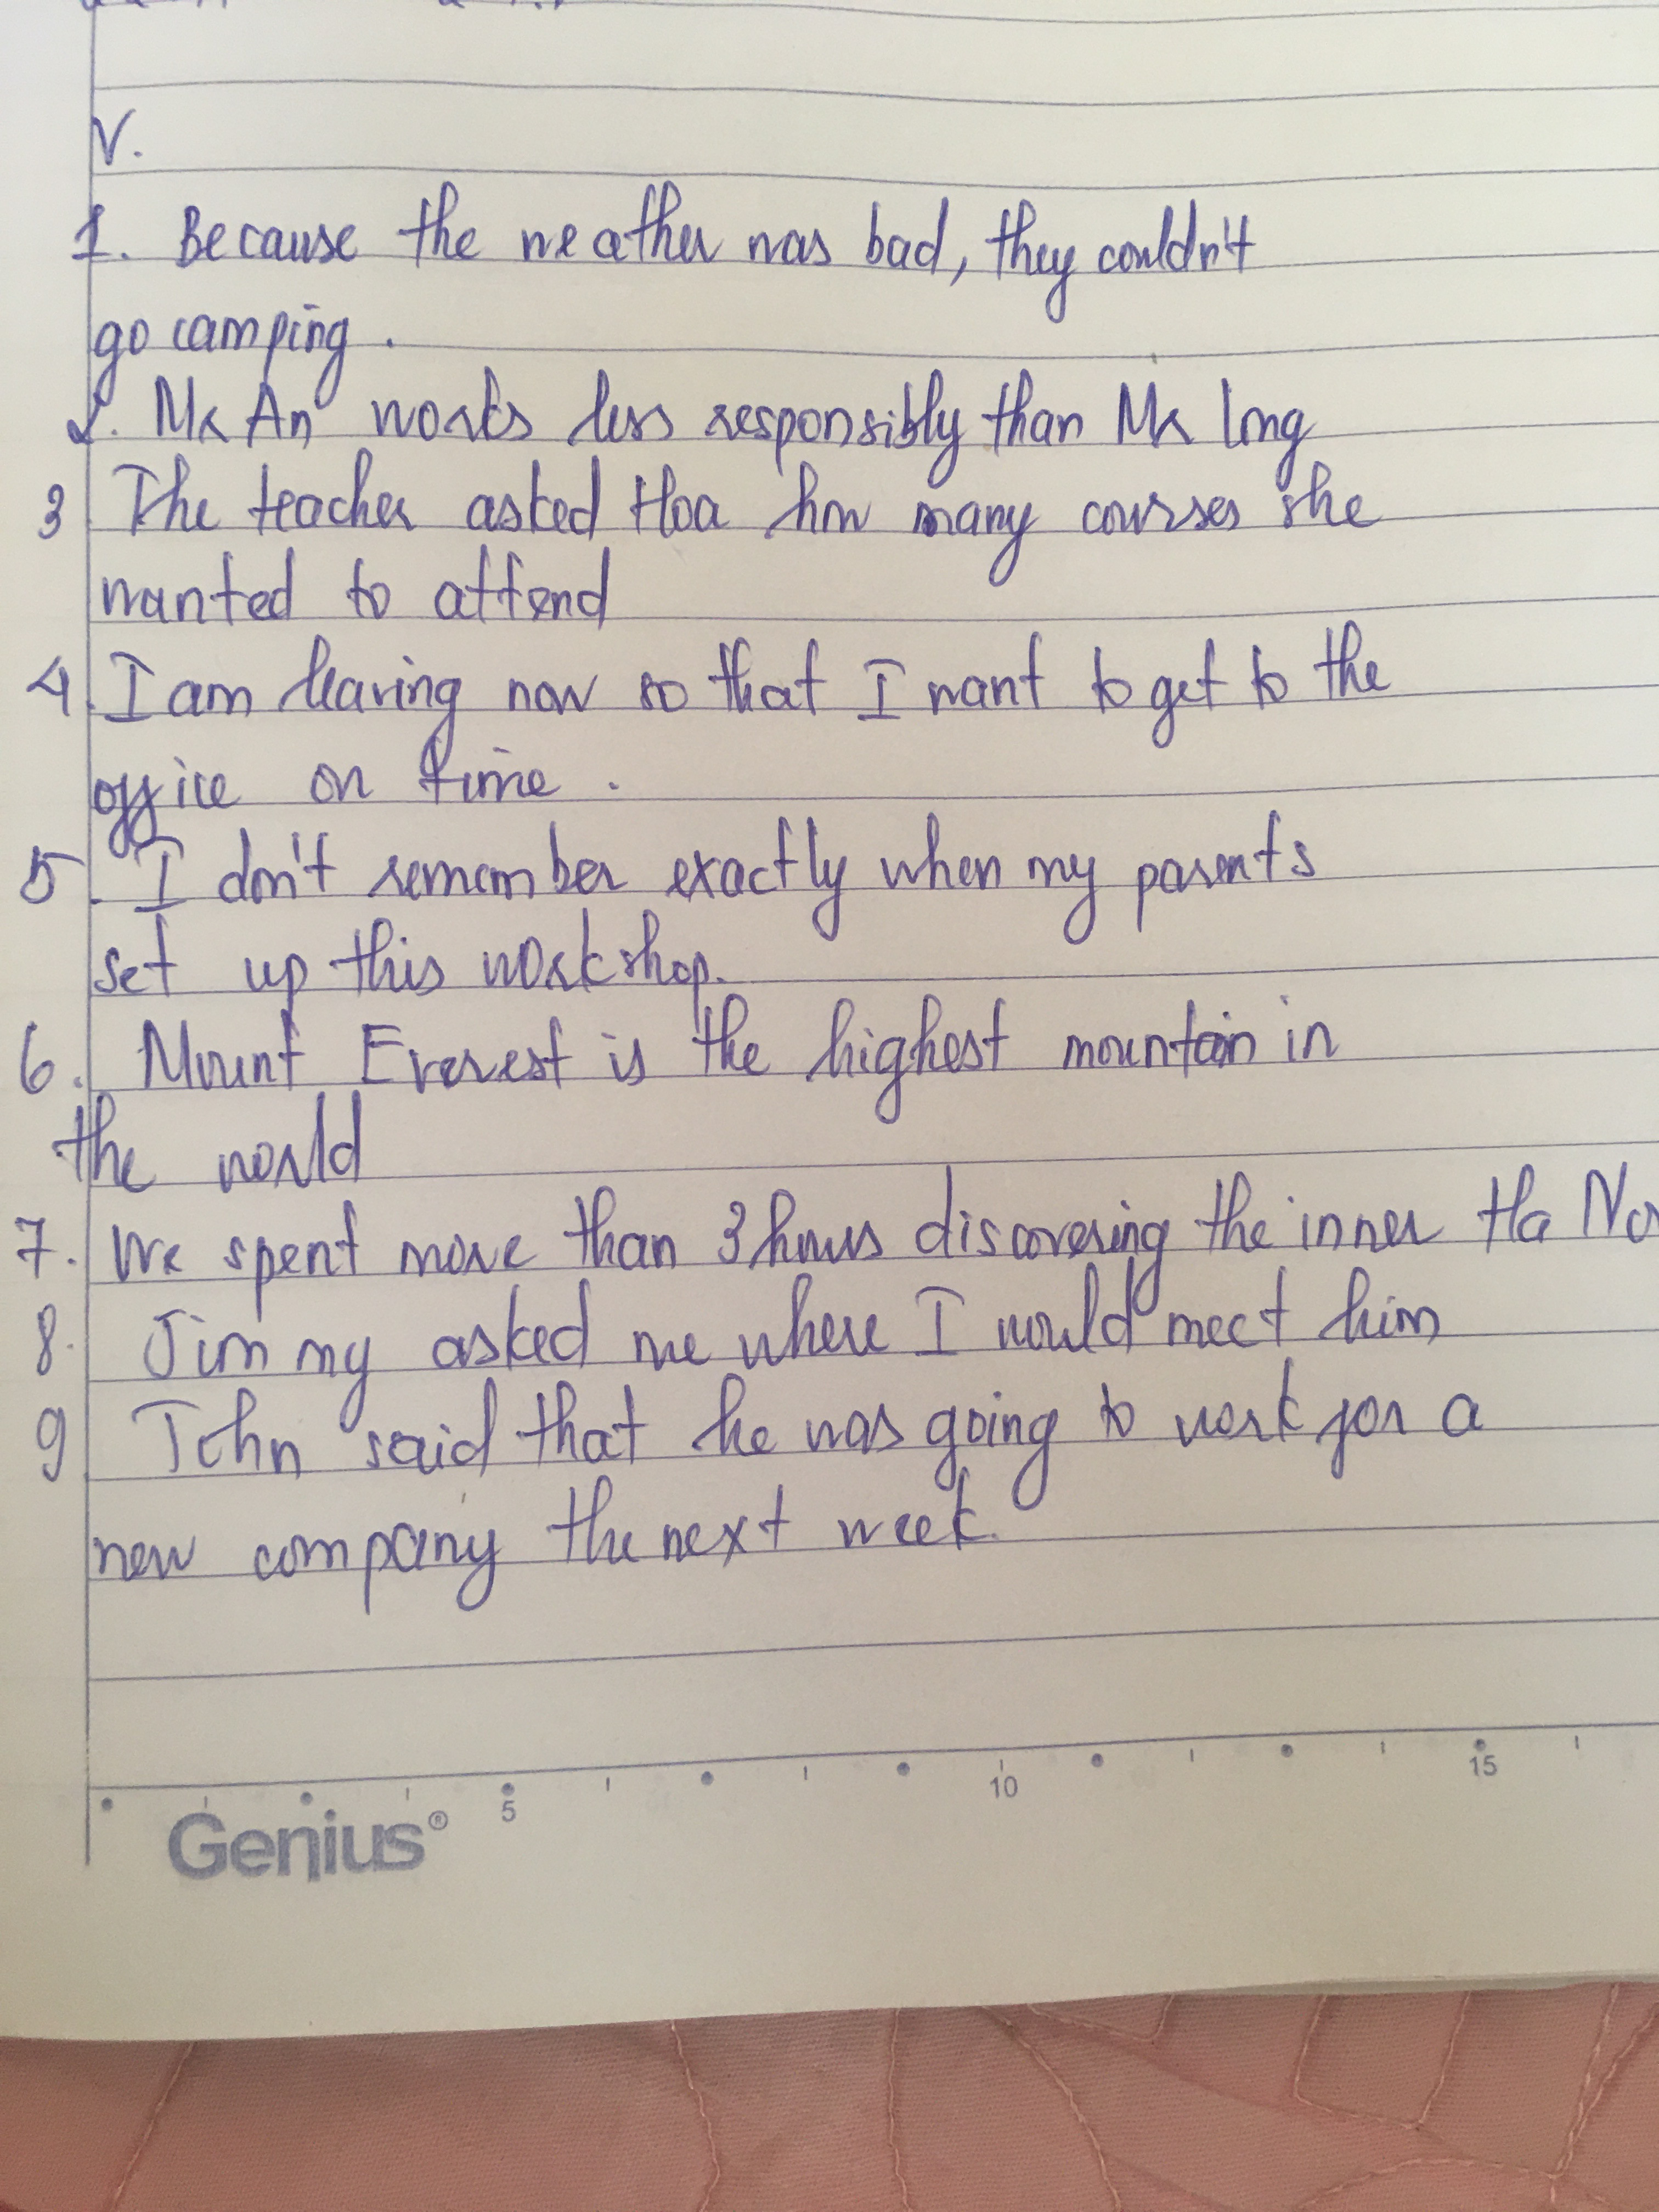 V.
1. Because the weather was bad, they couldn't
go camping.
2. Mr An works less responsibly than Mr Long
3 The teacher asked Hoa how many courses she
wanted to attend
4. I am leaving now so that I want to get to the
office on time.
5. I don't remember exactly when my parents
set up this workshop.
6. Mount Everest is the highest mountain in
the world
7. We spent more than 3 hours discovering the inner Ha No
8. Jimmy asked me where I would meet him
9 John said that he was going to work for a
new company the next week.
5 10 15
Genius®